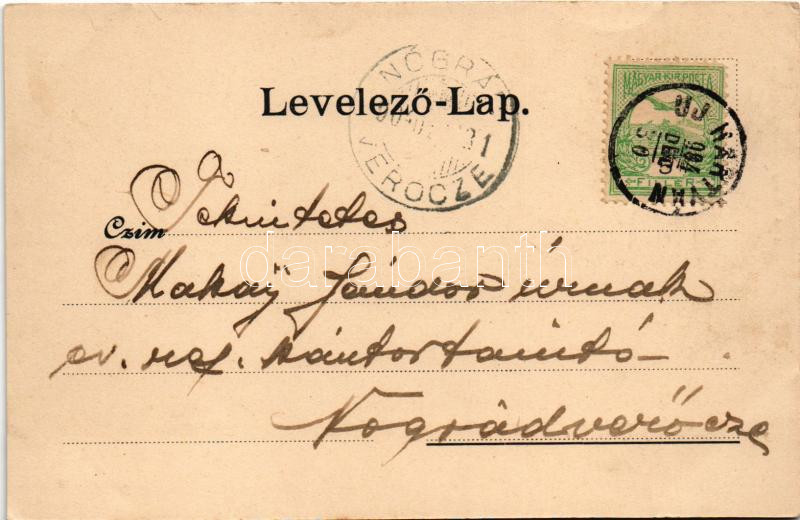 Levelező-Lap.
NÓGRÁD
VERŐCZE
MAGYAR KIR. POSTA
FILLÉR
Czim
Tekintetes
Makay Sándor úrnak
ev. ref. kántortanító
Nográdverőcze
darabanth